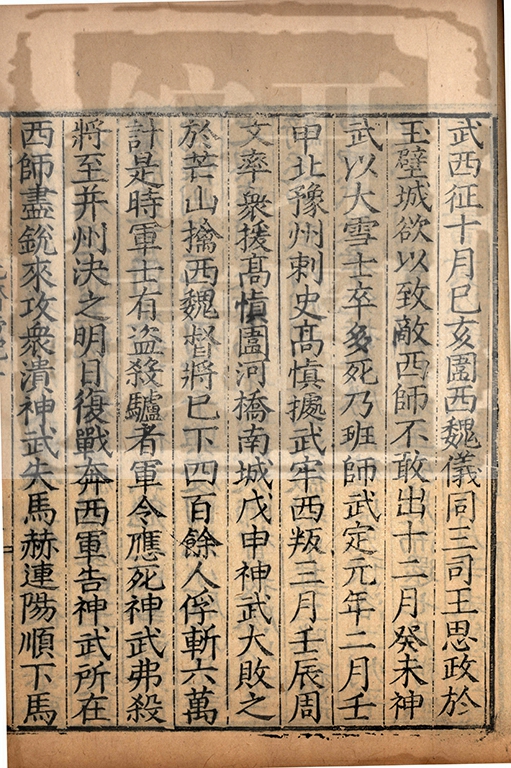 武西征十月己亥圍西魏儀同三司王思政於
玉壁城欲以致敵西師不敢出十二月癸未神
武以大雪士卒多死乃班師武定元年二月壬
申北豫州刺史高慎據武牢西叛三月壬辰周
文率衆援高慎圍河橋南城戊申神武大敗之
於芒山擒西魏督將已下四百餘人俘斬六萬
計是時軍士有盗殺驢者軍令應死神武弗殺
將至并州決之明日復戰奔西軍告神武所在
西師盡銳來攻衆潰神武失馬赫連陽順下馬